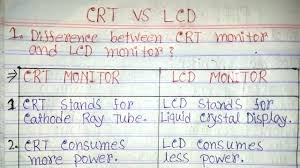 CRT VS LCD
1. Difference between CRT monitor
and LCD monitor?
→ CRT MONITOR LCD MONITOR
1 CRT Stands for LCD Stands for
Cathode Ray Tube. Liquid Crystal Display.
2 CRT Consumes LCD Consumes
more power. less power.